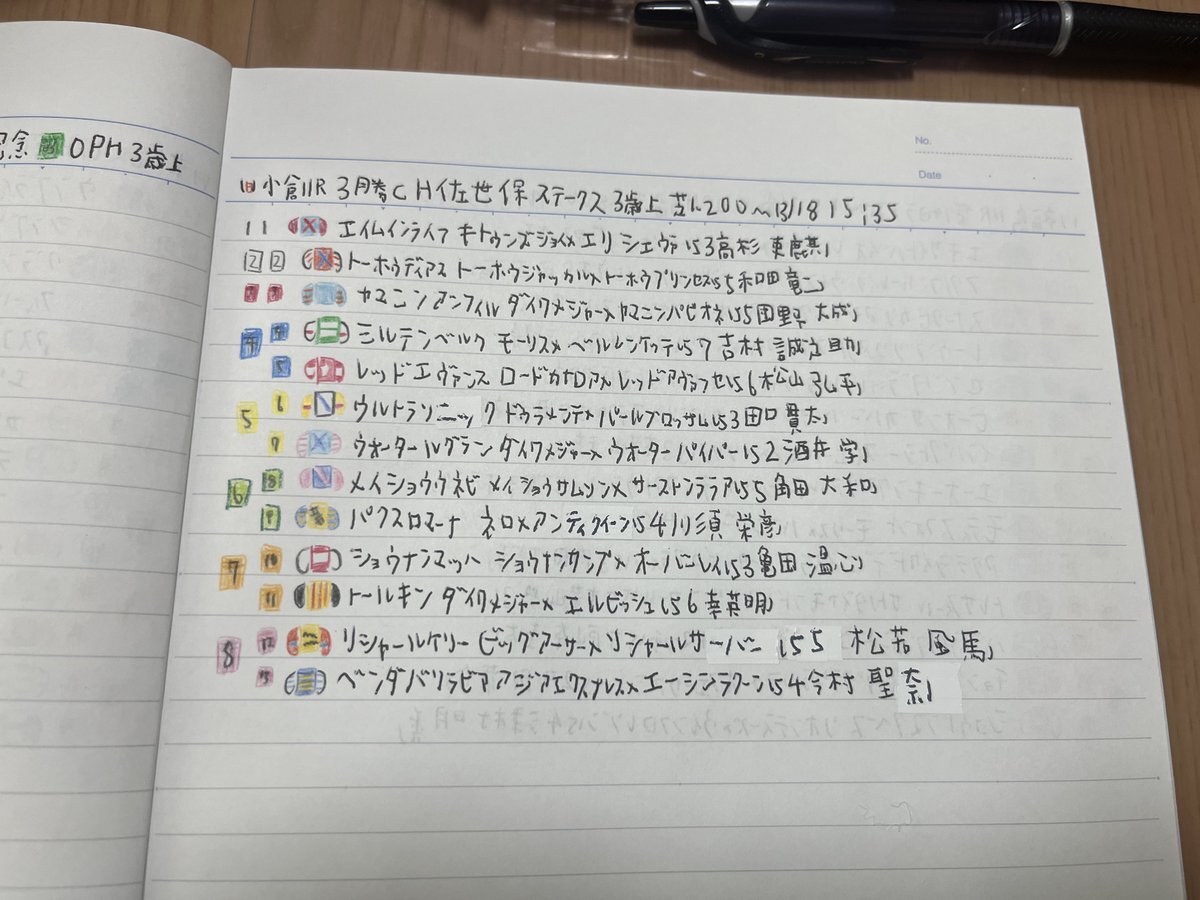 記念 OPH 3歳上
No.
Date
日 小倉11R 3勝C H 佐世保 ステークス 3歳上 芝1200m 13/18 15:35
1 1 エイムインライフ キトゥンズジョイ×エリシェヴァ 牡3高杉 吏麒
2 2 トーホウディアス トーホウジャッカル×トーホウプリンセス 牡5和田 竜二
3 3 ヤマニンアンフィル ダイワメジャー×ヤマニンパピオネ 牡5団野 大成
4 4 ミルテンベルク モーリス× 牡7吉村 誠之助
5 レッドエヴァンス ロードカナロア×レッドアヴァンセ 牡6松山 弘平
5 6 ウルトラソニック ドゥラメンテ×パールブロッサム 牡3田口 貫太
7 ウォータールグラン ダイワメジャー×ウォーターパイパー 牡2酒井 学
6 8 メイショウウネビ メイショウサムソン×サーストンテテア 牡5角田 大和
9 パクスロマーナ ネロ×アンティクイーン 牡4川須 栄彦
7 10 ショウナンマッハ ショウナンカンプ×オーバーレイ 牡3亀田 温心
11 トールキン ダイワメジャー×エルビッシュ 牡6幸英明
8 12 リシャールケリー ビッグアーサー×リシャールサーバー 牡5 松若 風馬
13 ベンダバリラビア アジアエクスプレス×エーシンラクーン 牡4今村 聖奈